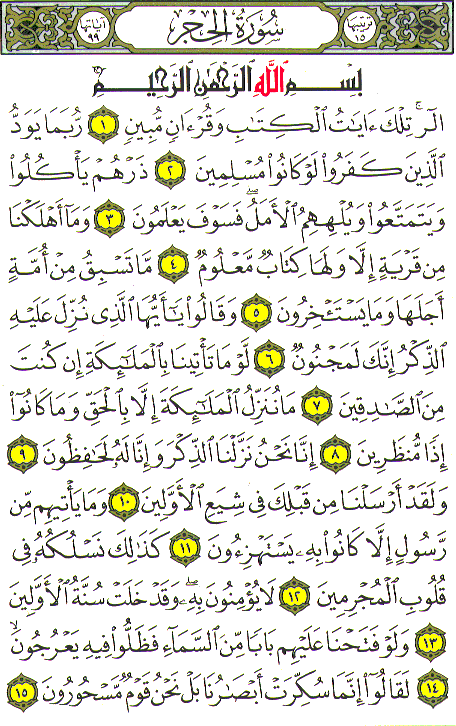 ترتيبها ١٥ سُورَةُ الحِجْر آياتها ٩٩
بِسْمِ اللَّهِ الرَّحْمَٰنِ الرَّحِيمِ
الٓرۚ تِلْكَ ءَايَٰتُ ٱلْكِتَٰبِ وَقُرْءَانٍ مُّبِينٍ ١ رُّبَمَا يَوَدُّ
ٱلَّذِينَ كَفَرُوا۟ لَوْ كَانُوا۟ مُسْلِمِينَ ٢ ذَرْهُمْ يَأْكُلُوا۟
وَيَتَمَتَّعُوا۟ وَيُلْهِهِمُ ٱلْأَمَلُۖ فَسَوْفَ يَعْلَمُونَ ٣ وَمَآ أَهْلَكْنَا
مِن قَرْيَةٍ إِلَّا وَلَهَا كِتَابٌ مَّعْلُومٌ ٤ مَّا تَسْبِقُ مِنْ أُمَّةٍ
أَجَلَهَا وَمَا يَسْتَـْٔخِرُونَ ٥ وَقَالُوا۟ يَٰٓأَيُّهَا ٱلَّذِى نُزِّلَ عَلَيْهِ
ٱلذِّكْرُ إِنَّكَ لَمَجْنُونٌ ٦ لَّوْ مَا تَأْتِينَا بِٱلْمَلَٰٓئِكَةِ إِن كُنتَ
مِنَ ٱلصَّٰدِقِينَ ٧ مَا نُنَزِّلُ ٱلْمَلَٰٓئِكَةَ إِلَّا بِٱلْحَقِّ وَمَا كَانُوٓا۟
إِذًا مُّنظَرِينَ ٨ إِنَّا نَحْنُ نَزَّلْنَا ٱلذِّكْرَ وَإِنَّا لَهُۥ لَحَٰفِظُونَ ٩
وَلَقَدْ أَرْسَلْنَا مِن قَبْلِكَ فِى شِيَعِ ٱلْأَوَّلِينَ ١٠ وَمَا يَأْتِيهِم مِّن
رَّسُولٍ إِلَّا كَانُوا۟ بِهِۦ يَسْتَهْزِءُونَ ١١ كَذَٰلِكَ نَسْلُكُهُۥ فِى
قُلُوبِ ٱلْمُجْرِمِينَ ١٢ لَا يُؤْمِنُونَ بِهِۦۖ وَقَدْ خَلَتْ سُنَّةُ ٱلْأَوَّلِينَ
١٣ وَلَوْ فَتَحْنَا عَلَيْهِم بَابًا مِّنَ ٱلسَّمَآءِ فَظَلُّوا۟ فِيهِ يَعْرُجُونَۙ
١٤ لَقَالُوٓا۟ إِنَّمَا سُكِّرَتْ أَبْصَٰرُنَا بَلْ نَحْنُ قَوْمٌ مَّسْحُورُونَ ١٥